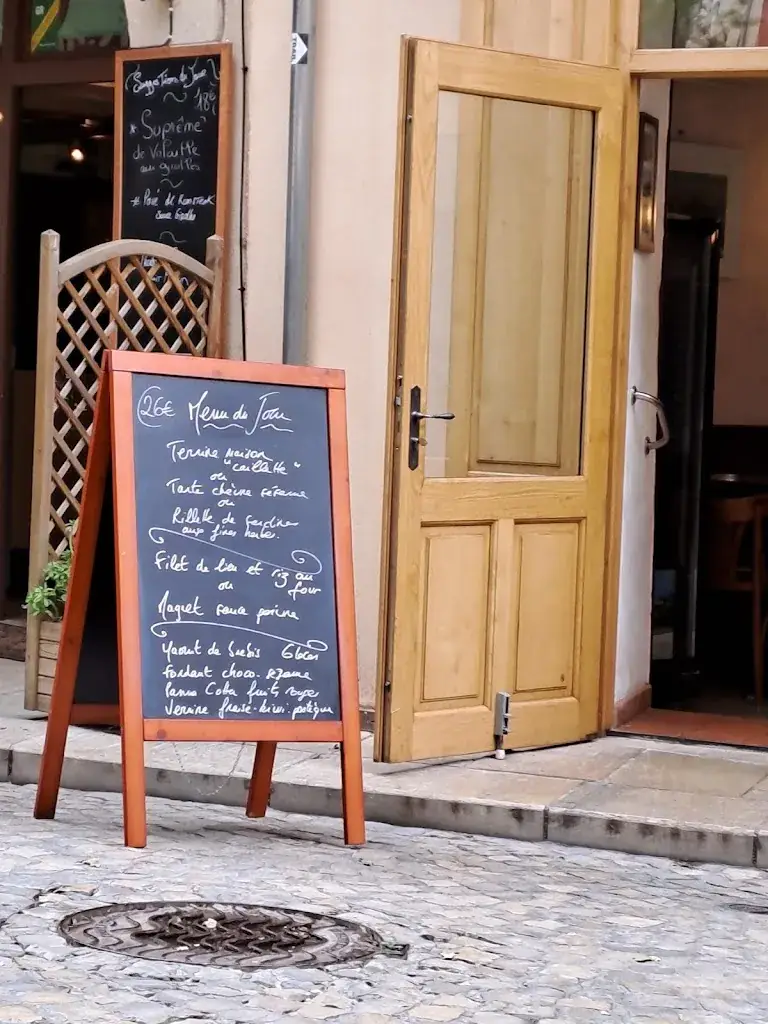 Suggestions du Jour
18€
* Suprême
de Volaille
aux girolles
* Pavé de
Sauce
26€ Menu du Jour
Terrine maison
"caillette"
ou
Tarte chèvre sésame
ou
Rillette de Sardines
aux fines herbes.
Filet de lieu et riz au
four
ou
Magret sauce porcine
Yaourt de Brebis
Fondant choco. sézame
Panna Cota fruits rouges
Verrine fraise. kiwi. pastèque